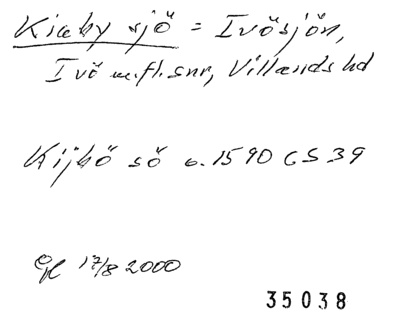 Kiaby sjö = Ivösjön,
Ivö m.fl. snr, Villands hd
Kijbö sö o. 1590 GS 39
17/8 2000
35038